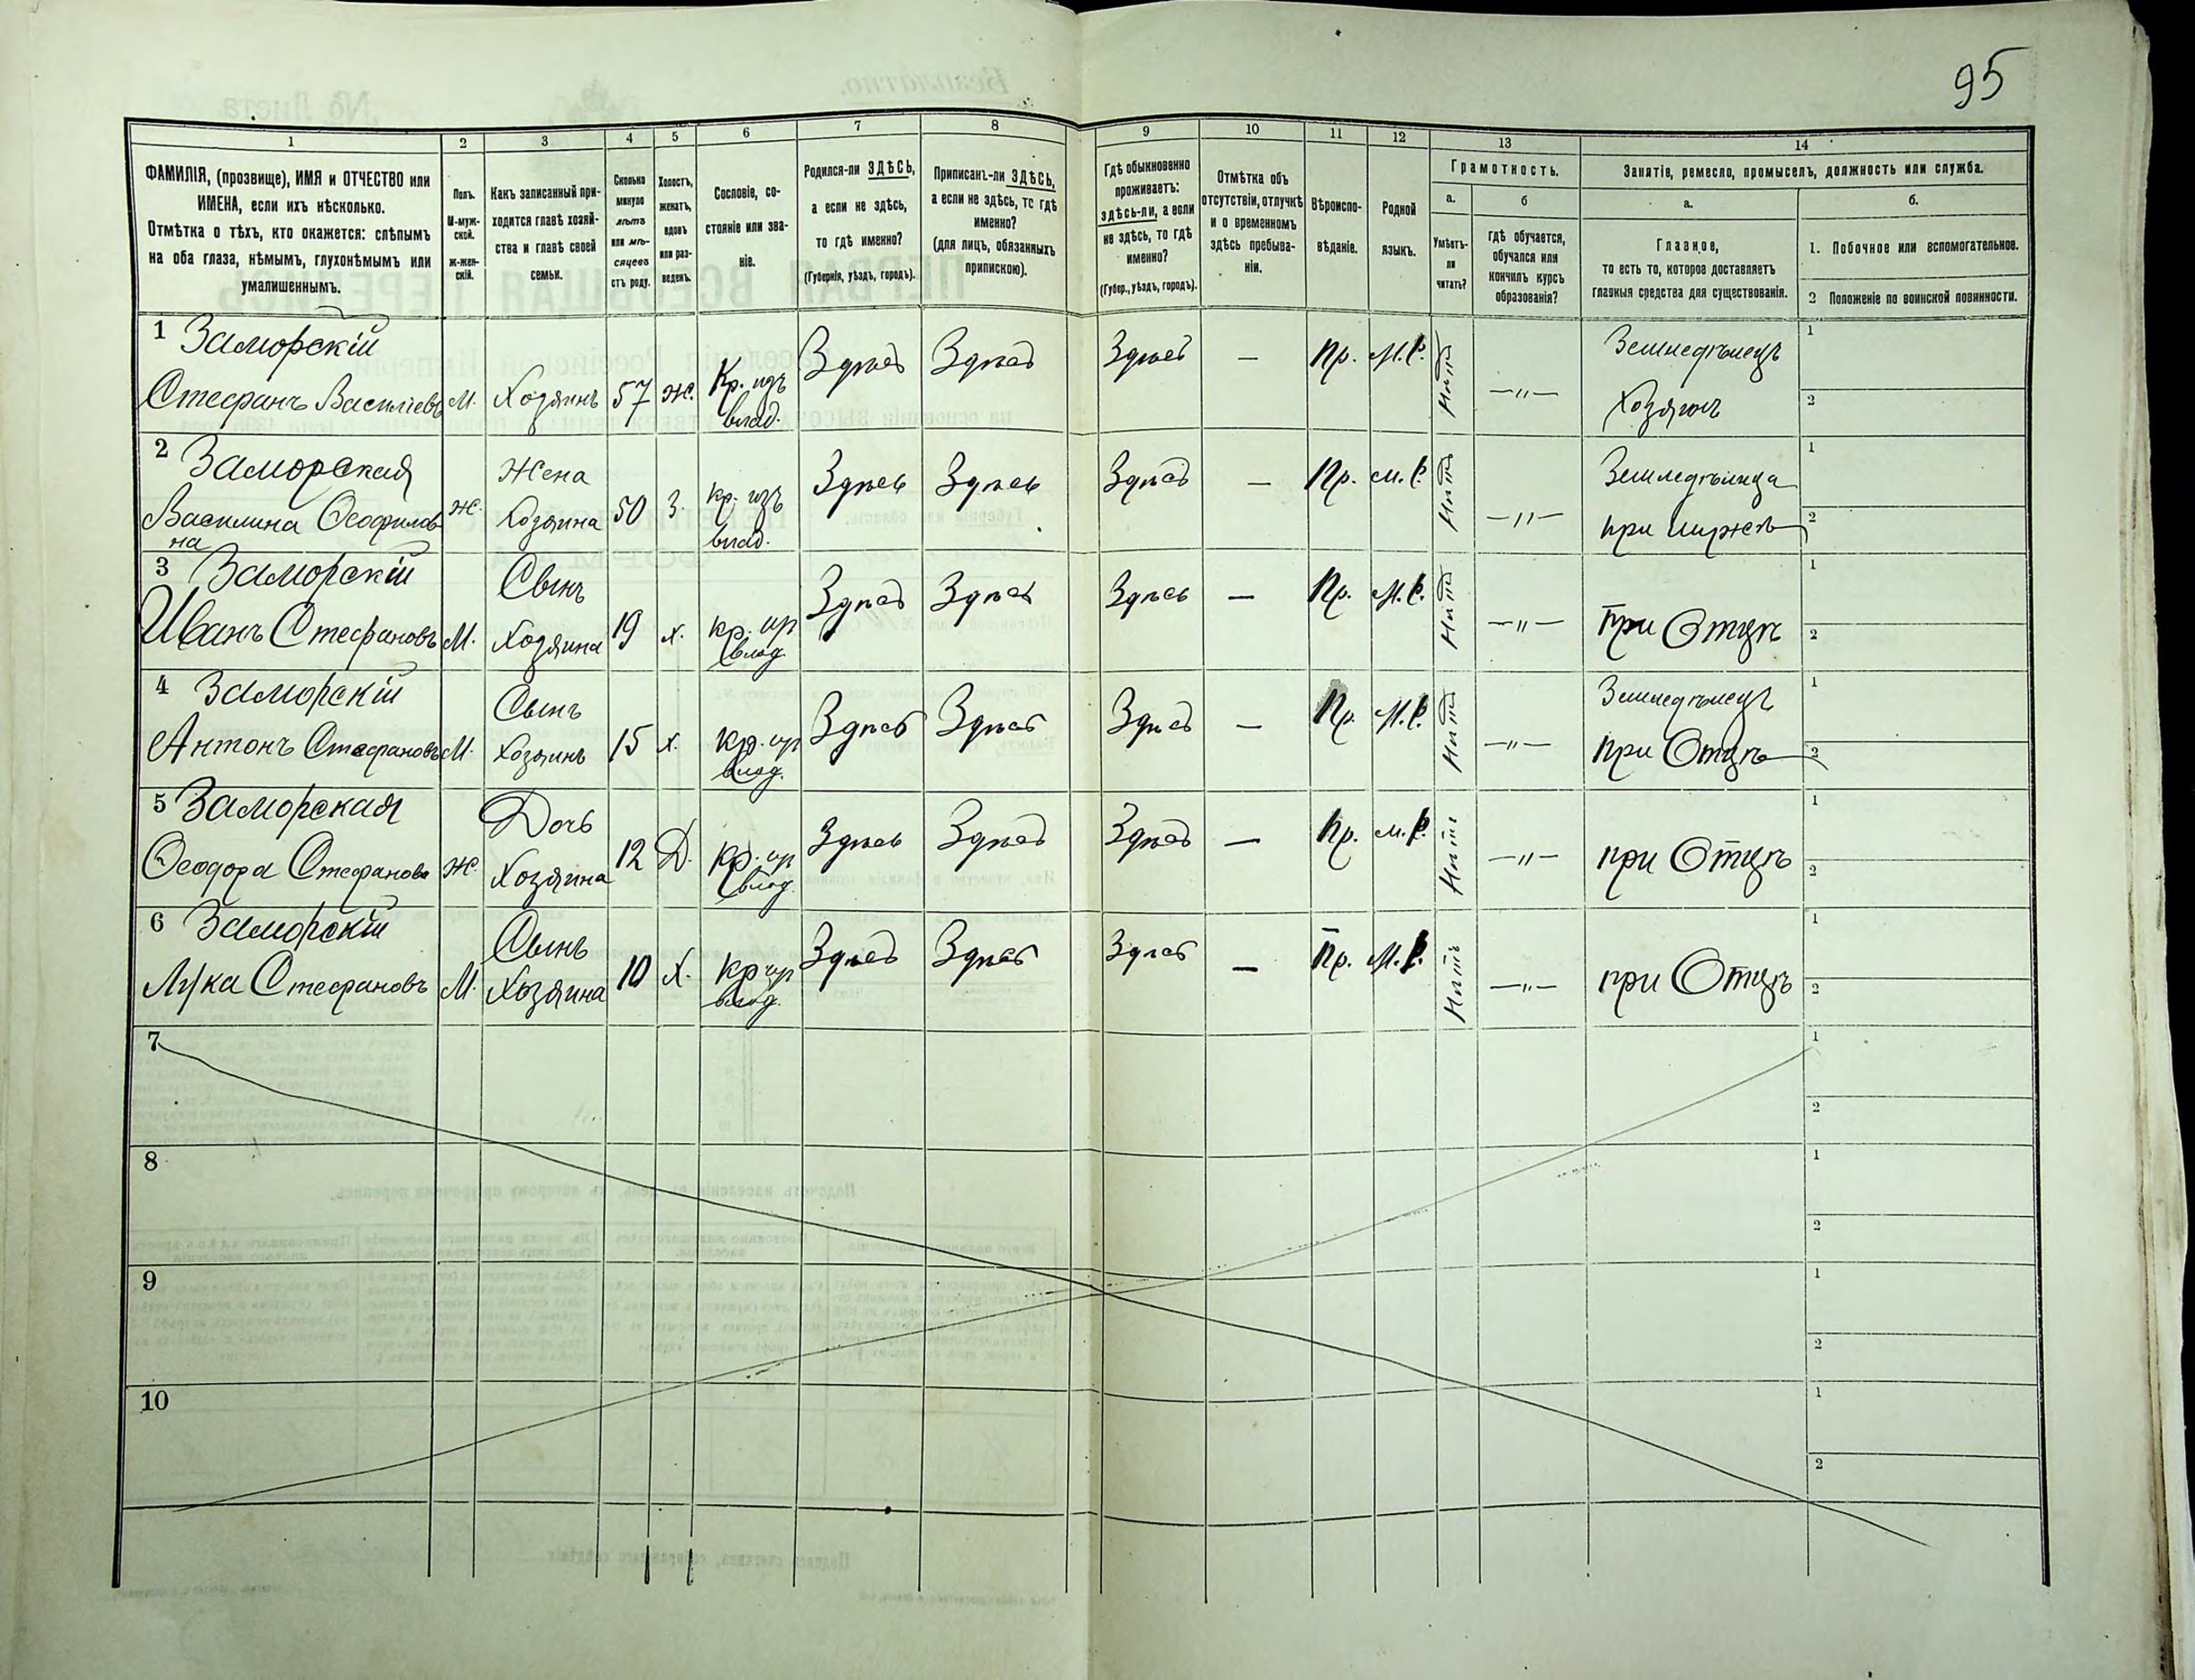 95
1 2 3 4 5 6 7 8 9 10 11 12 13 14
ФАМИЛІЯ, (прозвище), ИМЯ и ОТЧЕСТВО или
ИМЕНА, если ихъ нѣсколько.
Отмѣтка о тѣхъ, кто окажется: слѣпымъ
на оба глаза, нѣмымъ, глухонѣмымъ или
умалишеннымъ.
Полъ.
М-муж-
ской.
Ж-жен-
скій.
Какъ записанный при-
ходится главѣ хозяй-
ства и главѣ своей
семьи.
Сколько
минуло
лѣтъ
или мѣ-
сяцевъ
отъ роду.
Холостъ,
женатъ,
вдовъ
или раз-
веденъ.
Сословіе, со-
стояніе или зва-
ніе.
Родился-ли ЗДѢСЬ,
а если не здѣсь,
то гдѣ именно?
(Губернія, уѣздъ, городъ).
Приписанъ-ли ЗДѢСЬ,
а если не здѣсь, то гдѣ
именно?
(для лицъ, обязанныхъ
припискою).
Гдѣ обыкновенно
проживаетъ:
здѣсь-ли, а если
не здѣсь, то гдѣ
именно?
(Губер., уѣздъ, городъ).
Отмѣтка объ
отсутствіи, отлучкѣ
и о временномъ
здѣсь пребыва-
ніи.
Вѣроиспо-
вѣданіе.
Родной
языкъ.
Грамотность.
а.
Умѣетъ-
ли
читать?
б
гдѣ обучается,
обучался или
кончилъ курсъ
образованія?
Занятіе, ремесло, промыселъ, должность или служба.
а.
Главное,
то есть то, которое доставляетъ
главныя средства для существованія.
б.
1. Побочное или вспомогательное.
2 Положеніе по воинской повинности.
1 Заморскій Здѣсь Здѣсь Здѣсь — Пр. М.Р. Нѣтъ Земледѣлецъ 1
Стефанъ Василіевъ М. Хозяинъ 57 Ж. Кр. изъ —"— Хозяинъ 2
влад.
2 Заморская Жена Здѣсь Здѣсь Здѣсь — Пр. м.Р. Нѣтъ Земледѣлица 1
Василина Ѳеофилов Ж. Хозяина 50 З. Кр. изъ —"— при мужѣ 2
на влад.
3 Заморскій Сынъ Здѣсь Здѣсь Здѣсь — Пр. М.Р. Нѣтъ 1
Иванъ Стефановъ М. Хозяина 19 х. кр. из —"— При Отцѣ 2
влад
4 Заморскій Сынъ Здѣсь Здѣсь Здѣсь — Пр. М.Р. Нѣтъ Земледѣлецъ 1
Антонъ Стефановъ М. Хозяинъ 15 х. кр. из —"— при Отцѣ 2
влад.
5 Заморская Дочь Здѣсь Здѣсь Здѣсь — Пр. м.Р. Нѣтъ 1
Ѳеодора Стефанова Ж. Хозяина 12 Д. кр. из —"— при Отцѣ 2
влад.
6 Заморскій Сынъ Здѣсь Здѣсь Здѣсь — Пр. М.Р. Нѣтъ 1
Лука Стефановъ М. Хозяина 10 х. кр из —"— при Отцѣ 2
влад.
7 1
2
8 1
2
9 1
2
10 1
2